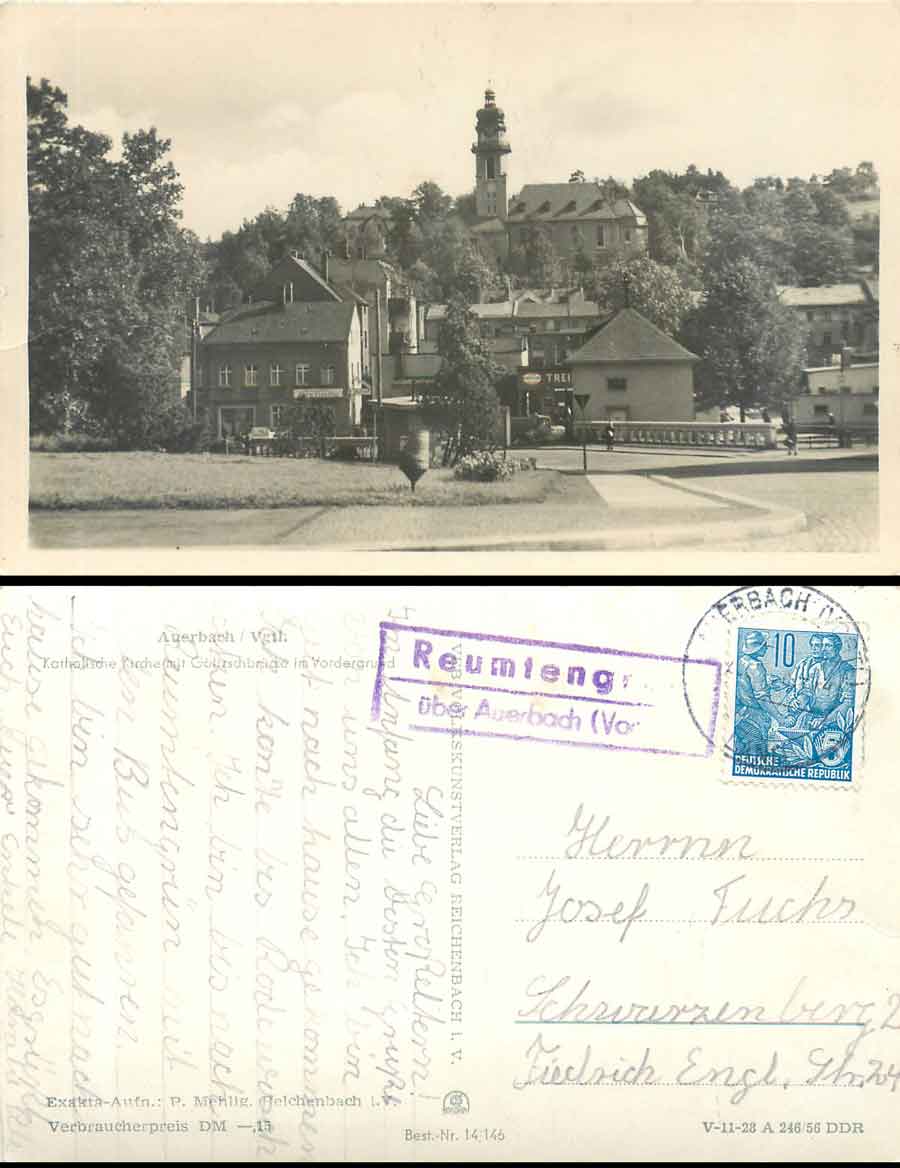 TREI
Auerbach / Vgtl.
Katholische Kirche mit Göltzschbrücke im Vordergrund
Reumteng
über Auerbach (Vo
ERBACH (V
10
5
DEUTSCHE
DEMOKRATISCHE REPUBLIK
VEB VOLKSKUNSTVERLAG REICHENBACH I. V.
Liebe Großeltern!
Am Anfang die besten Grüße
von uns allen. Ich bin
gut nach hause gekommen
bis Rodewisch
Ich bin bis nach
Reumtengrün mit
Bus gefahren.
Ich bin sehr gut nach
hause gekommen. Es grüßt
Euch Euer Enkel
Herrnn
Josef Fuchs
Schwarzenberg 2
Fiedrich Engl. Str. 24
Exakta-Aufn.: P. Mehlig, Reichenbach i.V.
Verbraucherpreis DM —,15
Best.-Nr. 14 146
V-11-28 A 246/56 DDR